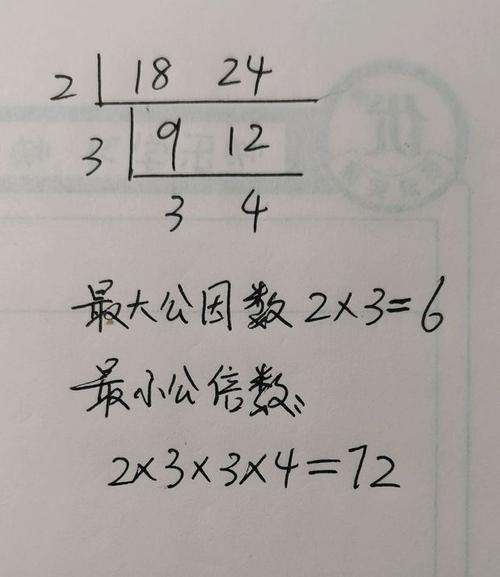 2 18 24
3 9 12
3 4
最大公因数 2×3=6
最小公倍数:
2×3×3×4=72